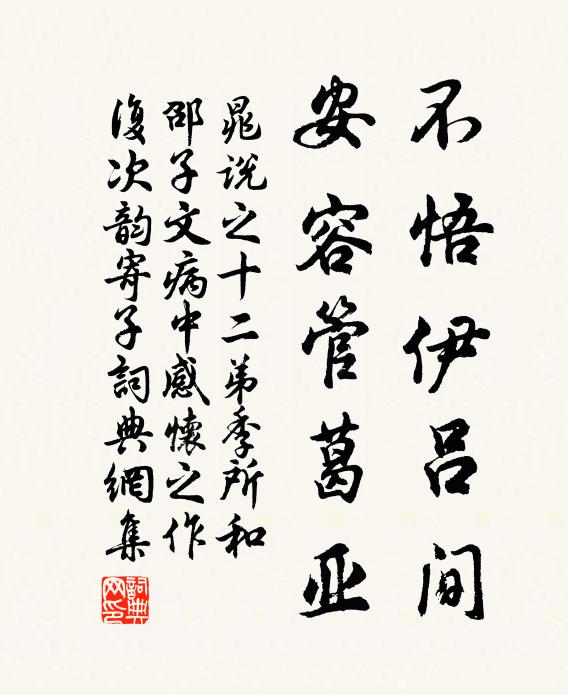 不悟伊吕间
安容管葛亚
晁说之十二弟季所和
邵子文病中感懷之作
復次韵寄子詞典網集
詞典网印